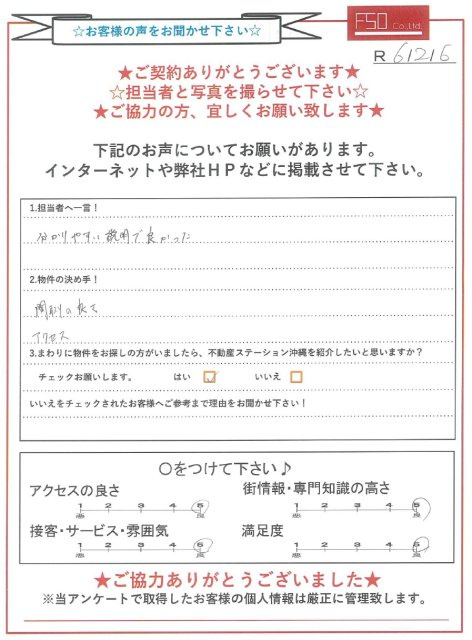 ☆お客様の声をお聞かせ下さい☆
FSO
Co.,Ltd.
R 6.12.16
★ご契約ありがとうございます★
☆担当者と写真を撮らせて下さい☆
★ご協力の方、宜しくお願い致します★
下記のお声についてお願いがあります。
インターネットや弊社HPなどに掲載させて下さい。
1.担当者へ一言！
分かりやすい説明で良かった
2.物件の決め手！
間取りの良さ
アクセス
3.まわりに物件をお探しの方がいましたら、不動産ステーション沖縄を紹介したいと思いますか？
チェックお願いします。 はい ☑ いいえ □
いいえをチェックされたお客様へご参考まで理由をお聞かせ下さい！
〇をつけて下さい♪
アクセスの良さ 街情報・専門知識の高さ
1 2 3 4 5 1 2 3 4 5
悪 良 悪 良
接客・サービス・雰囲気 満足度
1 2 3 4 5 1 2 3 4 5
悪 良 悪 良
★ご協力ありがとうございました★
※当アンケートで取得したお客様の個人情報は厳正に管理致します。